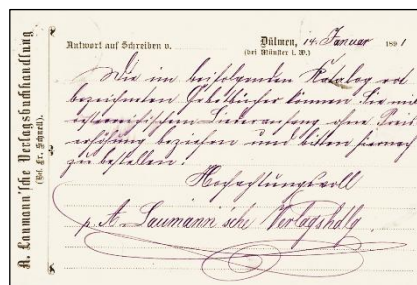 A. Laumann'sche Verlagsbuchhandlung
(Bes. Fr. Schnell).
Antwort auf Schreiben v.
Dülmen, 14. Januar 1891
(bei Münster i. W.)
Die im beifolgenden Katalog rot
bezeichneten Gebetbücher können Sie mit
österreichischem ohne Preis
erhöhung beziehen und bitten hiernach
zu bestellen.
Hochachtungsvoll
p. A. Laumann'sche Verlagshdlg